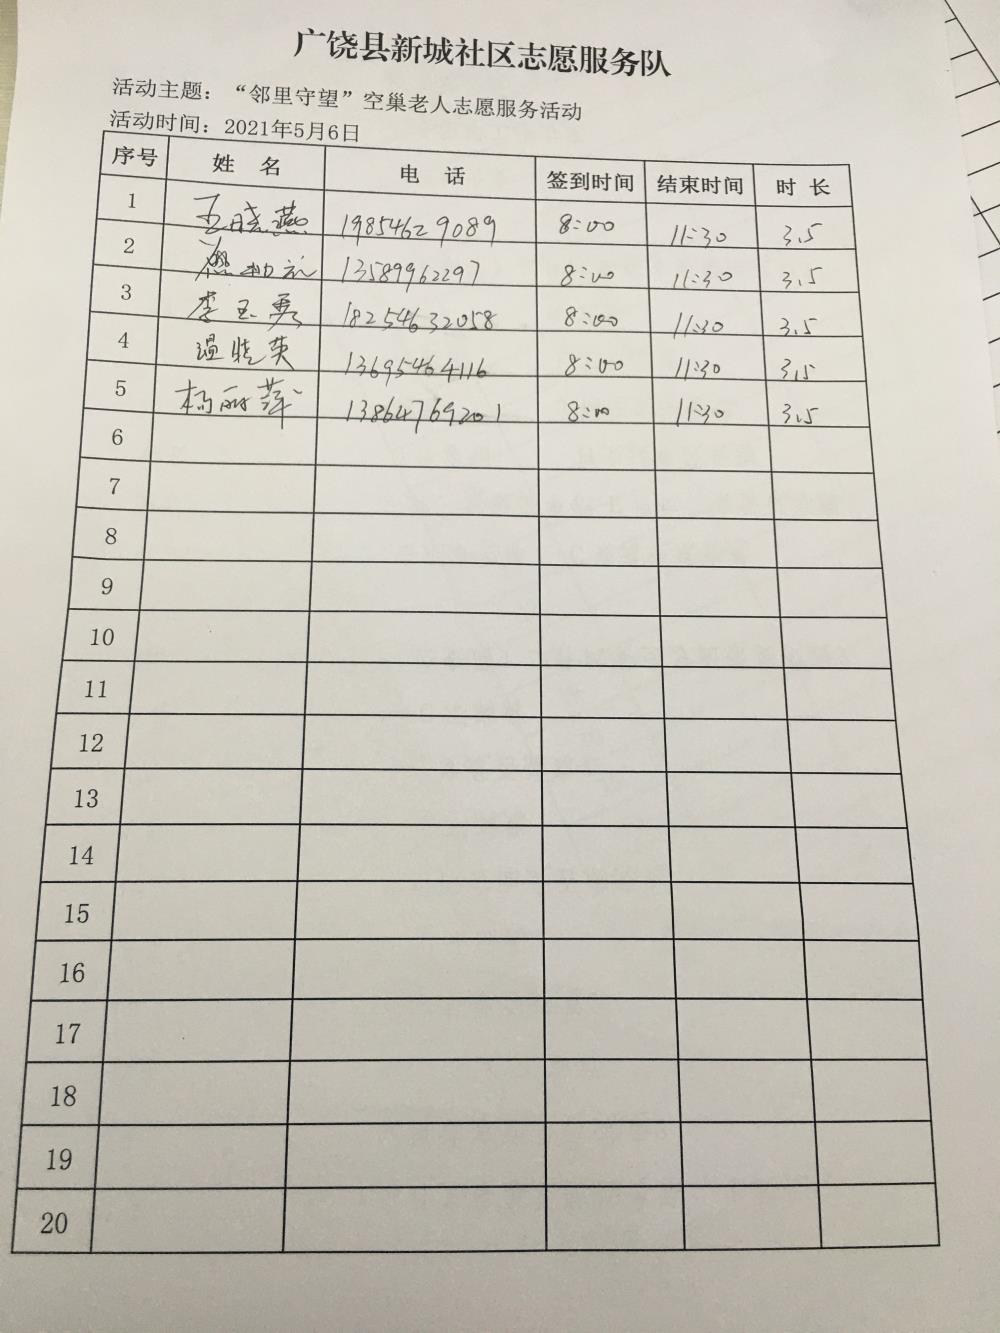 广饶县新城社区志愿服务队
活动主题：“邻里守望”空巢老人志愿服务活动
活动时间：2021年5月6日
序号 姓 名 电 话 签到时间 结束时间 时 长
1 王晓燕 19854629089 8:00 11:30 3.5
2 13589962297 8:00 11:30 3.5
3 李玉勇 18254632058 8:00 11:30 3.5
4 温晓英 13695464116 8:00 11:30 3.5
5 杨丽萍 13864769201 8:00 11:30 3.5
6
7
8
9
10
11
12
13
14
15
16
17
18
19
20